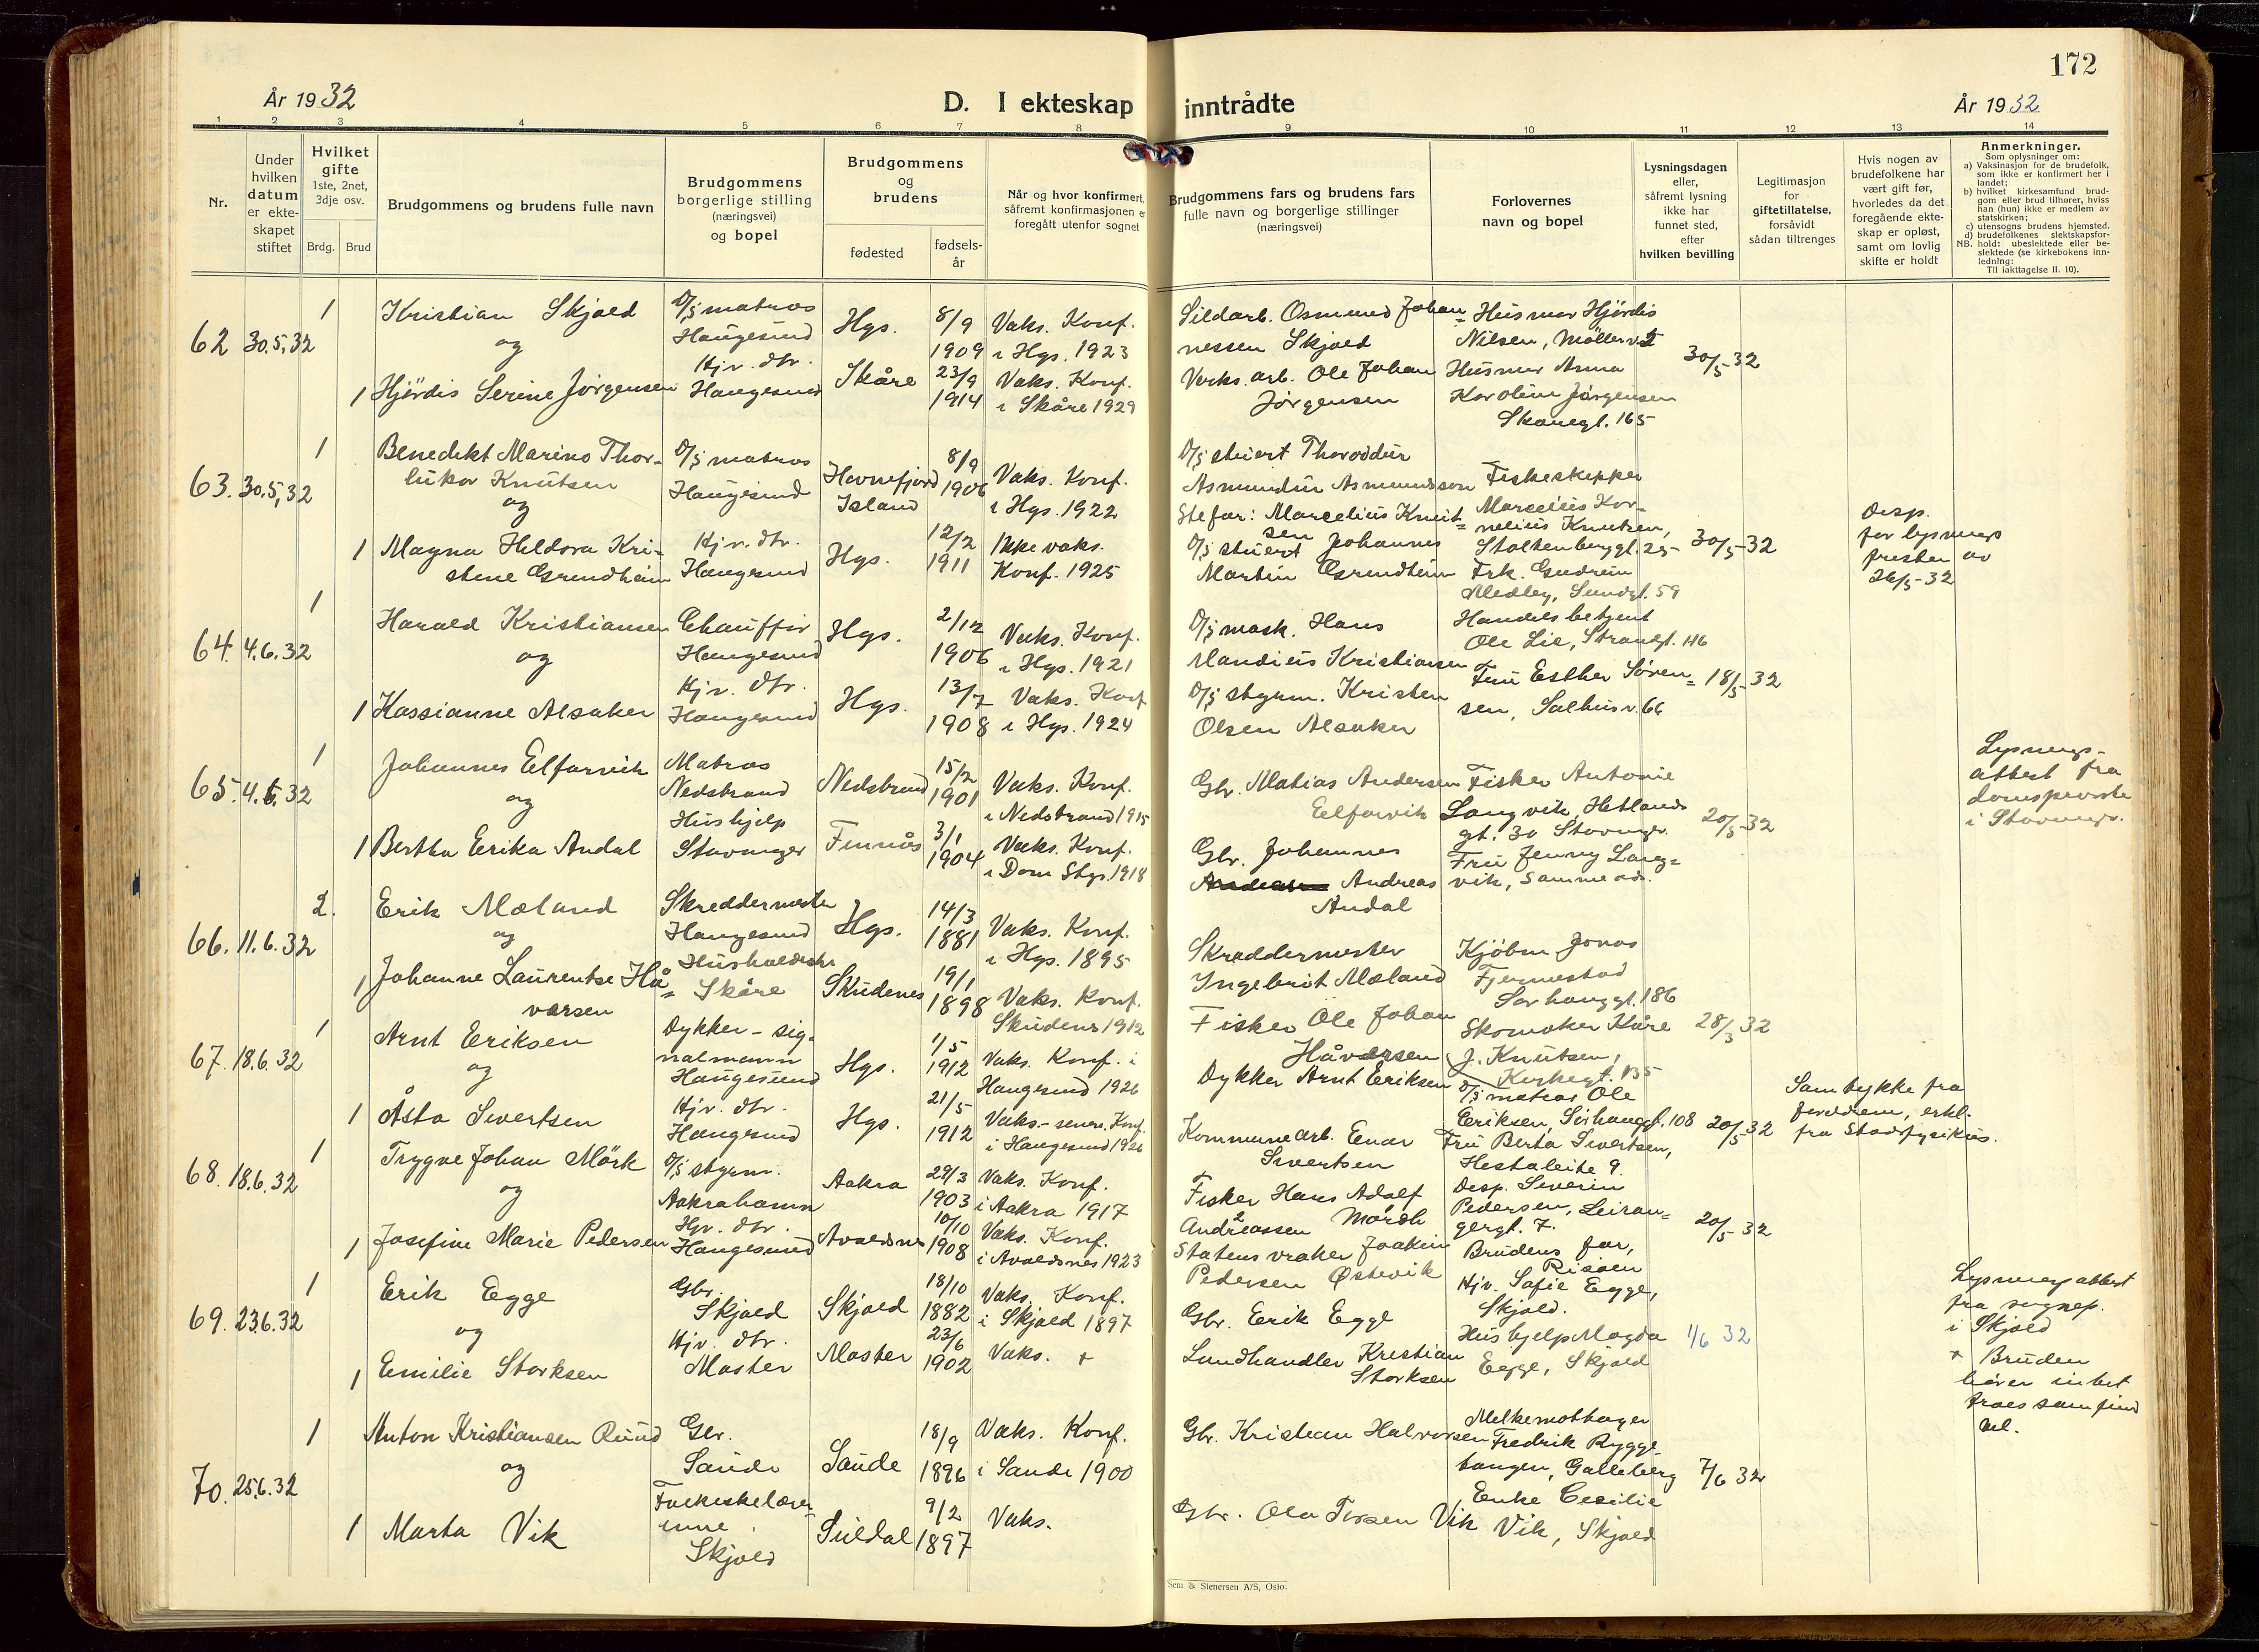 172
År 1932
D. I ekteskap inntrådte
År 1932
1 2 3 4 5 6 7 8 9 10 11 12 13 14
Nr.
Under hvilken datum er ekteskapet stiftet
Hvilket gifte
1ste, 2net, 3dje osv.
Brdg.
Brud
Brudgommens og brudens fulle navn
Brudgommens borgerlige stilling (næringsvei) og bopel
Brudgommens og brudens
fødested
fødselsår
Når og hvor konfirmert, såfremt konfirmasjonen er foregått utenfor sognet
Brudgommens fars og brudens fars fulle navn og borgerlige stillinger (næringsvei)
Forlovernes navn og bopel
Lysningsdagen eller, såfremt lysning ikke har funnet sted, efter hvilken bevilling
Legitimasjon for giftetillatelse, forsåvidt sådan tiltrenges
Hvis nogen av brudefolkene har vært gift før, hvorledes da det foregående ekteskap er opløst, samt om lovlig skifte er holdt
Anmerkninger.
Som oplysninger om:
a) Vaksinasjon for de brudefolk, som ikke er konfirmert her i landet;
b) hvilket kirkesamfund brudgom eller brud tilhører, hviss han (hun) ikke er medlem av statskirken;
c) utensogns brudens hjemsted.
d) brudefolkenes slektskapsforhold: ubeslektede eller beslektede (se kirkebokens innledning:
NB.
Til iakttagelse II. 10).
62 30.5.32
1 Kristian Skjold
og
1 Hjördis Serine Jörgensen
D/s matros
Haugesund
Hjv. dtr.
Haugesund
Hgs.
Skåre
8/9
1909
23/9
1914
Vaks. Konf.
i Hgs. 1923
Vaks. Konf.
i Skåre 1929
Sildarb. Osmund Johan=
nessen Skjold
Verks.arb. Ole Johan
Jörgensen
Husmor Hjördis
Nilsen, Möllerv.
Husmor Anna
Karoline Jörgensen
Skåregt. 165
30/5-32
63. 30.5,32
1 Benedikt Marino Thor-
lukor Knutsen
og
1 Magna Heldora Kri-
stene Grendheim
D/s matros
Haugesund
Hjv. dtr.
Haugesund
Havnefjord
Island
Hgs.
8/9
1906
12/2
1911
Vaks. Konf.
i Hgs. 1922
Ikke vaks.
Konf. 1925
D/s stuert Thoroddur
Asmundur Asmundsson
Stefar: Marcelius Knut=
sen
D/s stuert Johannes
Martin Grendheim
Fiskeskipper
Marcelius Kor-
nelius Knutsen,
Stoltenberggt. 25
Frk. Gudrun
Medley, Sundgt. 59
30/5-32
Disp.
for lysnings
fristen av
26/5-32
64. 4.6.32
1 Harald Kristiansen
og
1 Kassianne Alsaker
Chauffør
Haugesund
Hjv. dtr.
Haugesund
Hgs.
Hgs.
2/12
1906
13/7
1908
Vaks. Konf.
i Hgs. 1921
Vaks. Konf
i Hgs. 1924
D/s mask. Hans
Mandius Kristiansen
D/s styrm. Kristen
Olsen Alsaker
Handelsbetjent
Ole Lie, Strandgt. 116
Fru Esther Sören=
sen, Salhusv. 66
18/5-32
65. 4.6.32
1 Johannes Elfarvik
og
1 Bertha Erika Andal
Matros
Nedstrand
Hushjelp
Stavanger
Nedstrand
Finnås
15/2
1901
3/1
1904
Vaks. Konf.
i Nedstrand 1915
Vaks. Konf.
i Dom Stgr. 1918
Gbr. Matias Andersen
Elfarvik
Gbr. Johannes
Andreas
Andal
Fisker Antonie
Langvik, Hetlands
gt. 30 Stavanger.
Fru Jenny Lang=
vik, samme ads.
20/5-32
Lysnings-
attest fra
domsprosten
i Stavanger.
66. 11.6.32
2. Erik Mæland
og
1 Johanne Laurentse Hå=
varsen
Skreddermester
Haugesund
Husholderske
Skåre
Hgs.
Skudenes
14/3
1881
19/1
1898
Vaks. Konf.
i Hgs. 1895
Vaks. Konf.
Skudenes 1912
Skreddermester
Ingebrit Mæland
Fisker Ole Johan
Håvarsen
Kjöbm. Jonas
Fjermestad
Sörhauggt. 186
Skomaker Kåre
J. Knutsen,
Kirkegt. 135
28/3 32
67. 18.6.32
1 Arnt Eriksen
og
1 Åsta Sivertsen
Dykker-sig-
nalmann
Haugesund
Hjv. dtr.
Haugesund
Hgs.
Hgs.
1/5
1912
21/5
1912
Vaks. Konf. i
Haugesund 1926
Vaks.-senere. Konf.
i Haugesund 1926
Dykker Arnt Eriksen
Kommunearb. Enar
Sivertsen
D/s matros Ole
Eriksen, Sörhauggt. 108
Fru Berta Sivertsen,
Hestaleite 9.
20/5-32
Samtykke fra
foreldrene, erkl.
fra Stadfysikus.
68. 18.6.32
1 Trygve Johan Mörk
og
1 Josefine Marie Pedersen
D/s styrm.
Aakrahamn
Hjv. dtr.
Haugesund
Aakra
Avaldsnes
29/3
1903
10/10
1908
Vaks. Konf.
i Aakra 1917
Vaks. Konf.
i Avaldsnes 1923
Fisker Hans Adolf
Andreassen Mördk
Statens vraker Joakim
Pedersen Østevik
Disp. Severin
Pedersen, Leiran=
gergt. 7.
Brudens far,
Risöen
20/5-32
69. 23.6.32
1 Erik Egge
og
1 Emilie Storksen
Gbr.
Skjold
Hjv. dtr.
Moster
Skjold
Moster
18/10
1882
23/6
1902
Vaks. Konf.
i Skjold 1897
Vaks. +
Gbr. Erik Egge
Landhandler Kristian
Storksen
Hjv. Sofie Egge,
Skjold.
Hushjelp Magda
Egge, Skjold
1/6 32
Lysningsattest
fra sognep.
i Skjold
+ Bruden
hörer intet
trossamfund
til.
70. 25.6.32
1 Anton Kristiansen Ruud
og
1 Marta Vik
Gbr.
Sande
Folkeskolærer-
inne.
Skjold
Sande
Suldal
18/9
1896
9/2
1897
Vaks. Konf.
i Sande 1900
Vaks.
Gbr. Kristian Halvorsen
Gbr. Ola Torsen Vik
Melkemottager
Fredrik Rygge-
tangen, Galleberg
Enke Cesilie
Vik, Skjold
7/6 32
Sem & Stenersen A/S, Oslo.